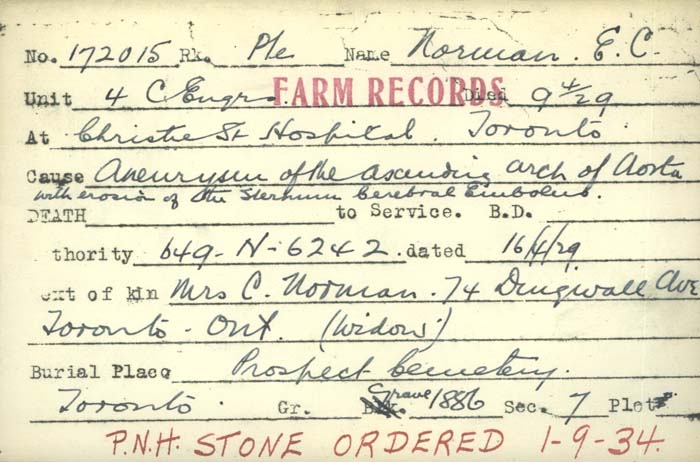 No. 172015 Rk. Pte Name Norman. E. C.
Unit 4 C Engrs. FARM RECORDS Died 9/4/29
At Christie St Hospital. Toronto
Cause Aneurysm of the ascending arch of Aorta
with erosion of the Sternum Cerebral Embolus.
DEATH to Service. B.D.
thority 649-N-6242 dated 16/4/29
ext of kin Mrs C. Norman. 74 Dingwall Ave
Toronto - Ont. (Widow)
Burial Place Prospect Cemetery.
Toronto. Gr. Grave 1886 Sec. 7 Plot
P.N.H. STONE ORDERED 1-9-34.